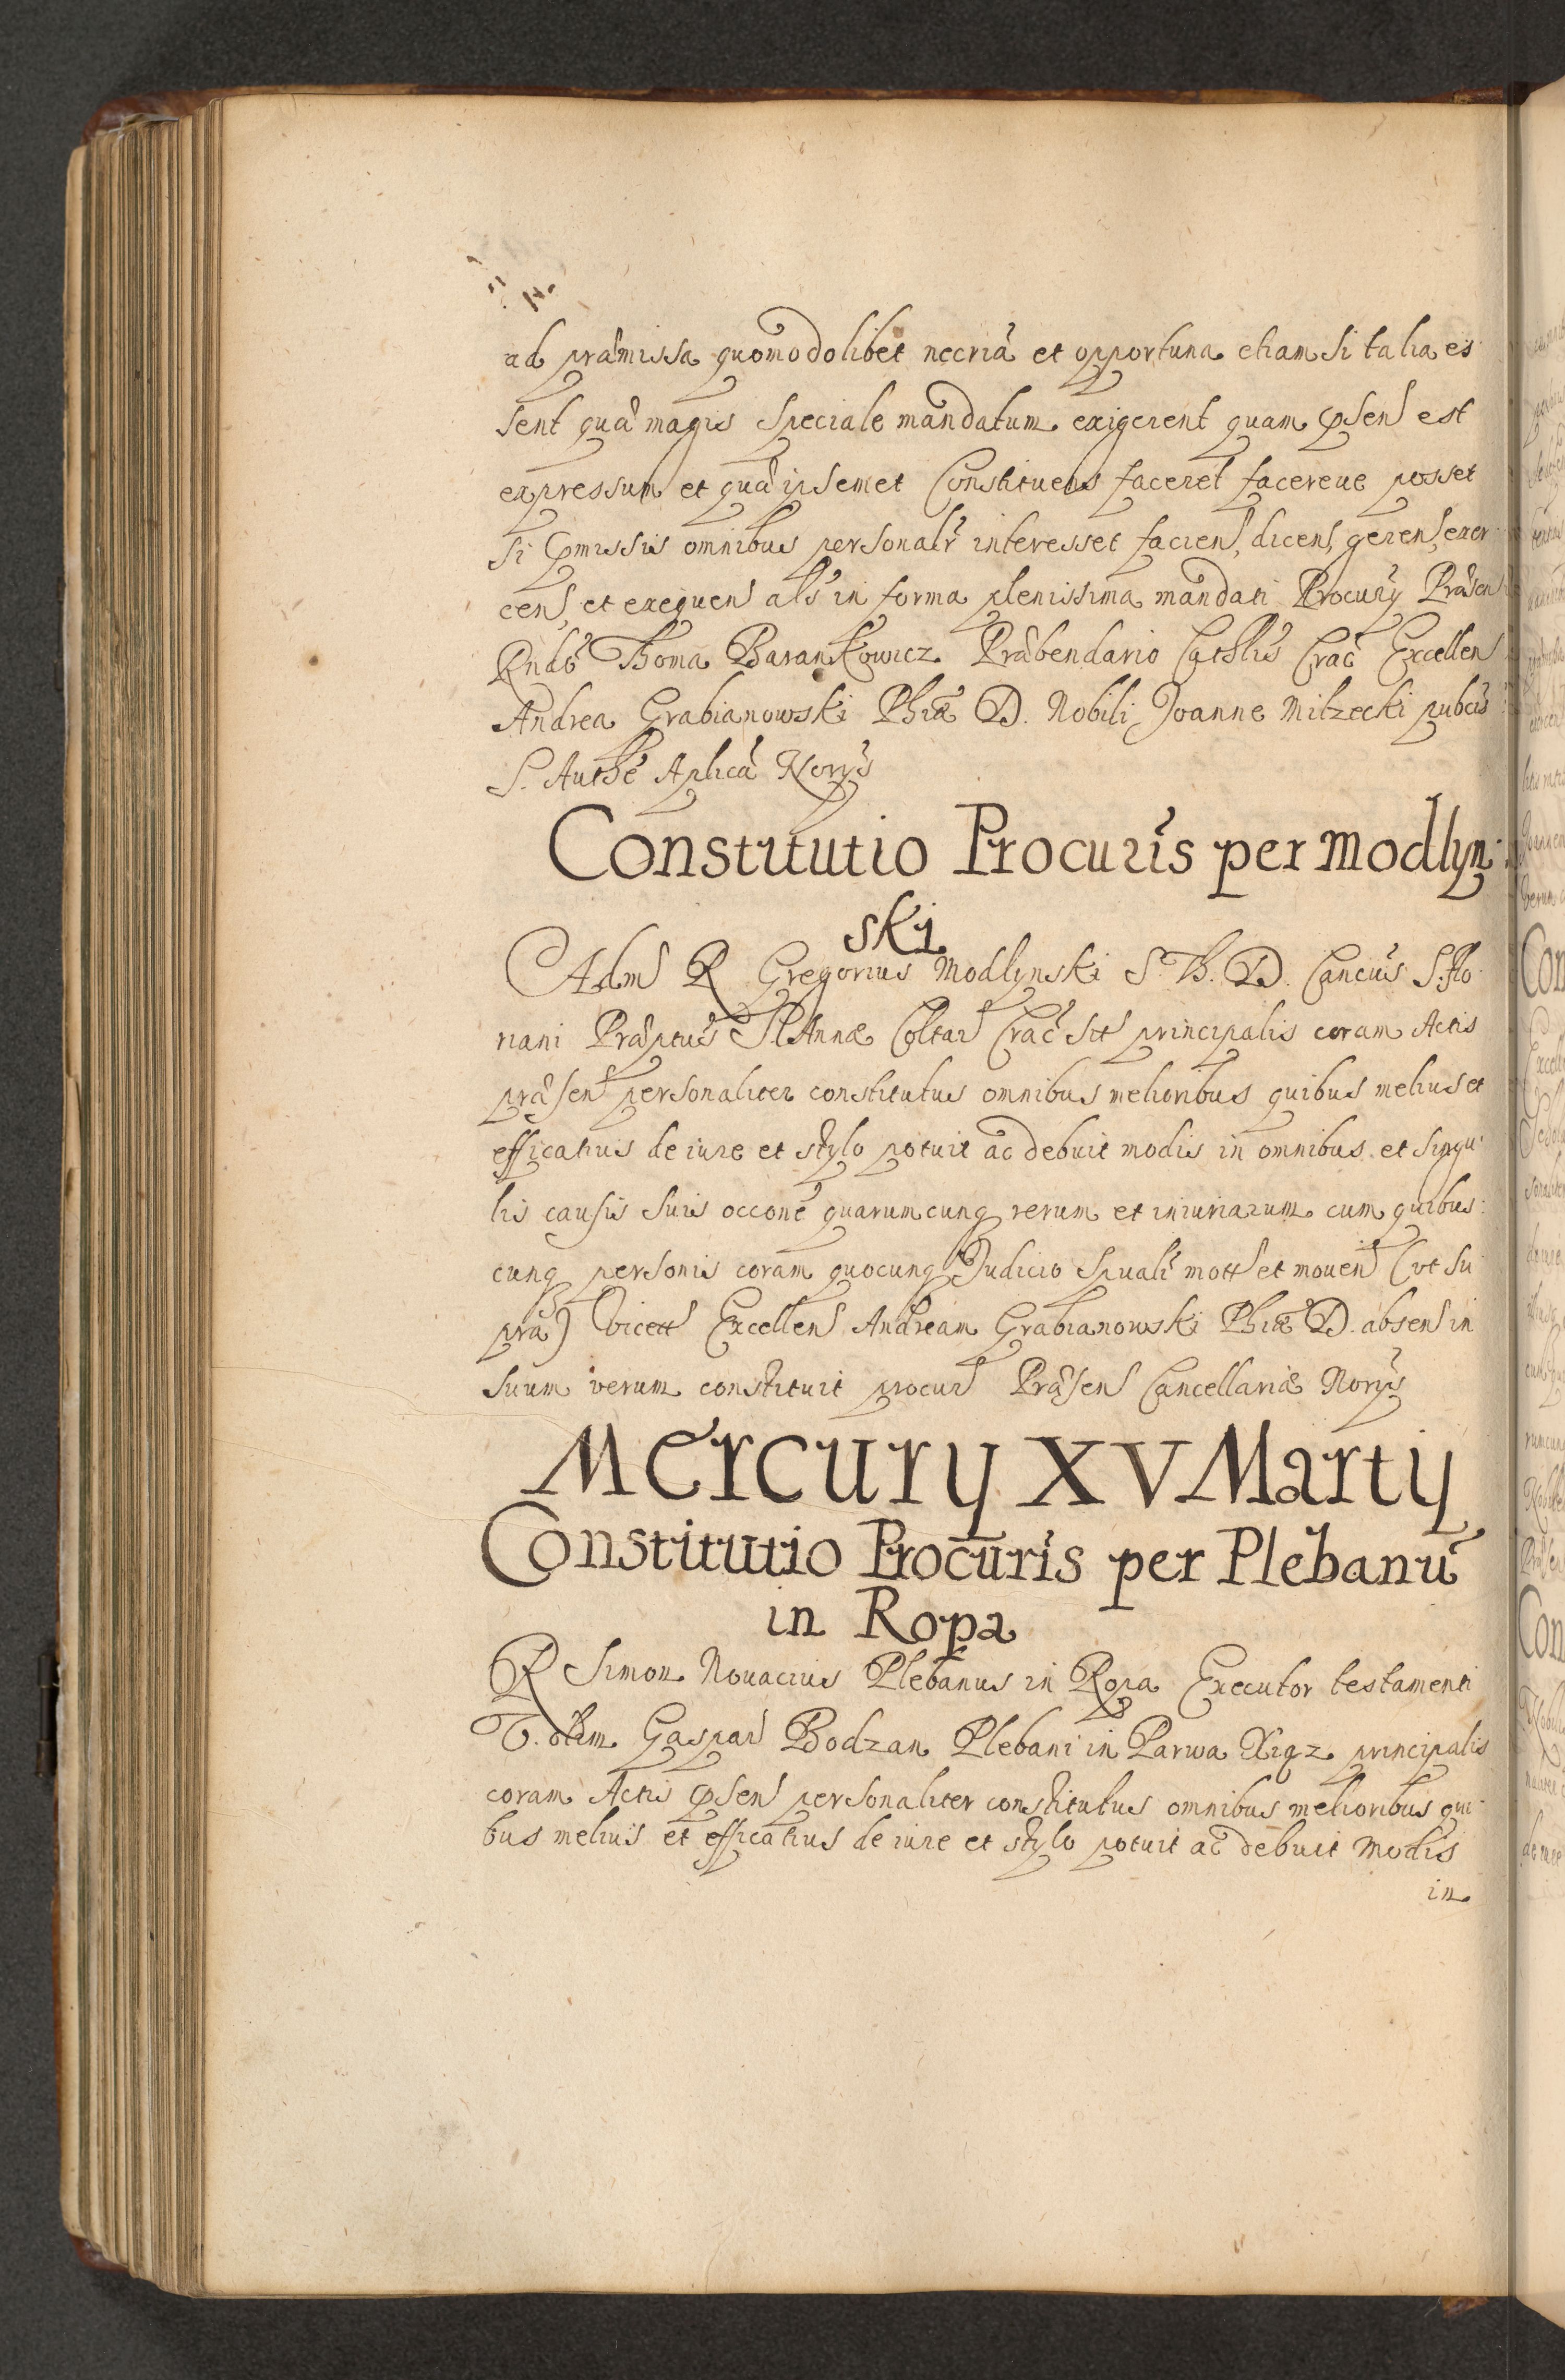 ad præmissa quomodolibet necriã et opportuna etiam si talia es
sent quæ magis speciale mandatum exigerent quam p̃sen est
expressum et quæ ipsemet Constituens faceret facereue posset
si p̃missis omnibus personalr̃ interesset facien, dicen, geren, exer
cen, et exequen als̃ in forma plenissima mandati Procurÿ Præsen
Rndõ Thoma Barankowicz Præbendario Cathlis̃ Crac̃ Excellen
Andrea Grabianowski Phiæ D. Nobili Joanne Milzecki pubcis̃
S. Authẽ Aplicã Norÿs
Constitutio Procuris̃ per Modlyn
ski
Adm R Gregorius Modlynski S. Th. D. Cancus̃ S. Flo
riani Præptus̃ S. Annæ Coltar Crac̃ sit principalis coram Actis
præsen personaliter constitutus omnibus melioribus quibus melius et
efficatius de iure et stylo potuit ac debuit modis in omnibus et singu
lis causis suis occonẽ quarumcunq rerum et iniuriarum cum quibus
cunq personis coram quocunq Judicio Spualĩ mott et mouen (vt su
pra) vicett Excellen Andream Grabianowski Phiæ D. absen in
suum verum constituit procur Præsen Cancellariæ Norÿs
Mercurÿ XV Martÿ
Constitutio Procuris̃ per Plebanũ
in Ropa
R Simon Nouacius Plebanus in Ropa Executor testamenti
V. olim Gaspar Bodzan Plebani in Parwa principalis
coram Actis p̃sen personaliter constitutus omnibus melioribus qui
bus melius et efficatius de iure et stylo potuit ac debuit modis
in